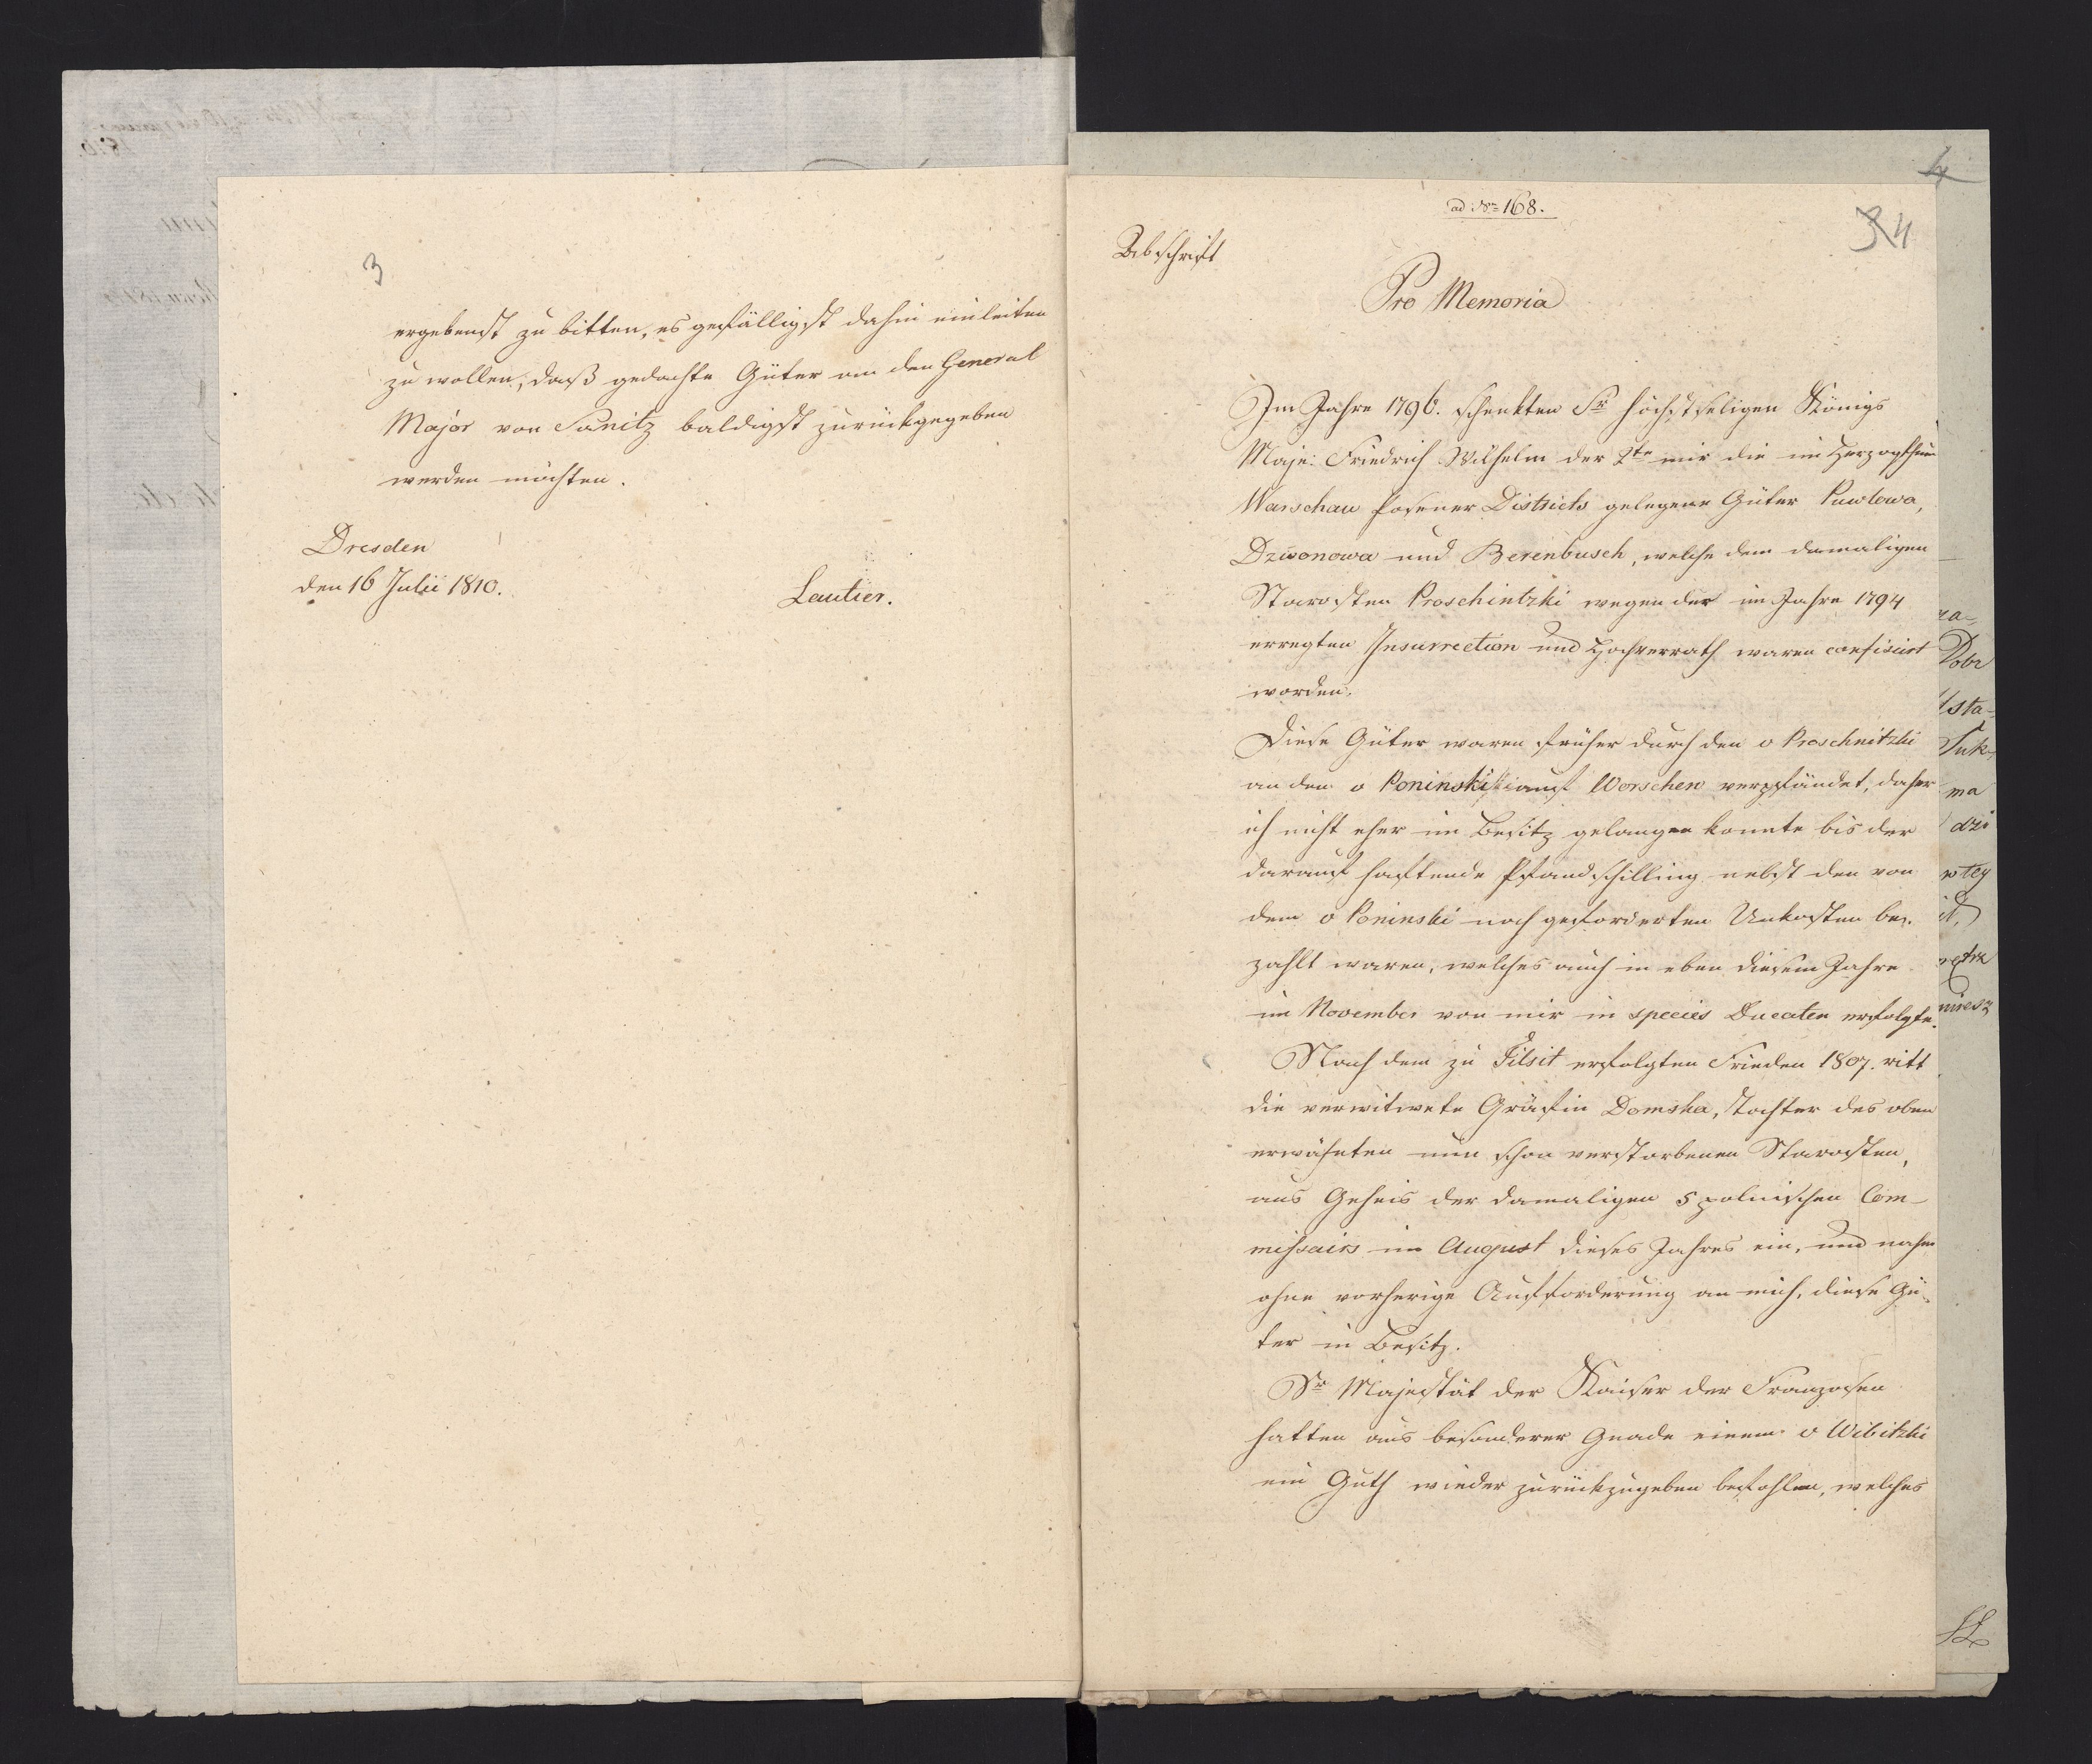 3
ergebenst zu bitten, es gefälligst dahin einleiten
zu wollen, daß gedachte Güter an den General
Major von Sanitz baldigst zurückgegeben
werden möchten.
Dresden
den 16 Julii 1810.
Lautier.
ad No 168.
4
34
Abschrift
Pro Memoria
Im Jahre 1796. schenkten Sr höchstseligen Königs
Maje: Friedrich Wilhelm der 2te mir die im Herzogthum
Warschau Posener Districts gelegene Güter Pawlowa,
Dzwonowa und Berenbusch, welche dem damaligen
Starosten Proschintzki wegen der im Jahre 1794
erregten Insurrection und Hochverrath waren confiscirt
worden.
Diese Güter waren früher durch den v Proschnitzki
an den v Poninski auf Worschen verpfändet, daher
ich nicht eher im Besitz gelangen konnte bis der
darauf haftende Pfandschilling nebst den von
dem v Poninski noch geforderten Unkosten be-
zahlt waren, welches auch in eben diesem Jahre
im November von mir in species Ducaten erfolgte.
Nach dem zu Tilsit erfolgten Frieden 1807. ritt
die verwitwete Gräfin Domska, Tochter des oben
erwähnten nun schon verstorbenen Starosten,
aus Geheis der damaligen 5 polnischen Com-
missairs im August dieses Jahres ein, und nahm
ohne vorherige Aufforderung an mich, diese Gü-
ter in Besitz.
Sr Majestät der Kaiser der Franzosen
hatten aus besonderer Gnade einem v Wibitzki
ein Guth wieder zurückzugeben befohlen, welches